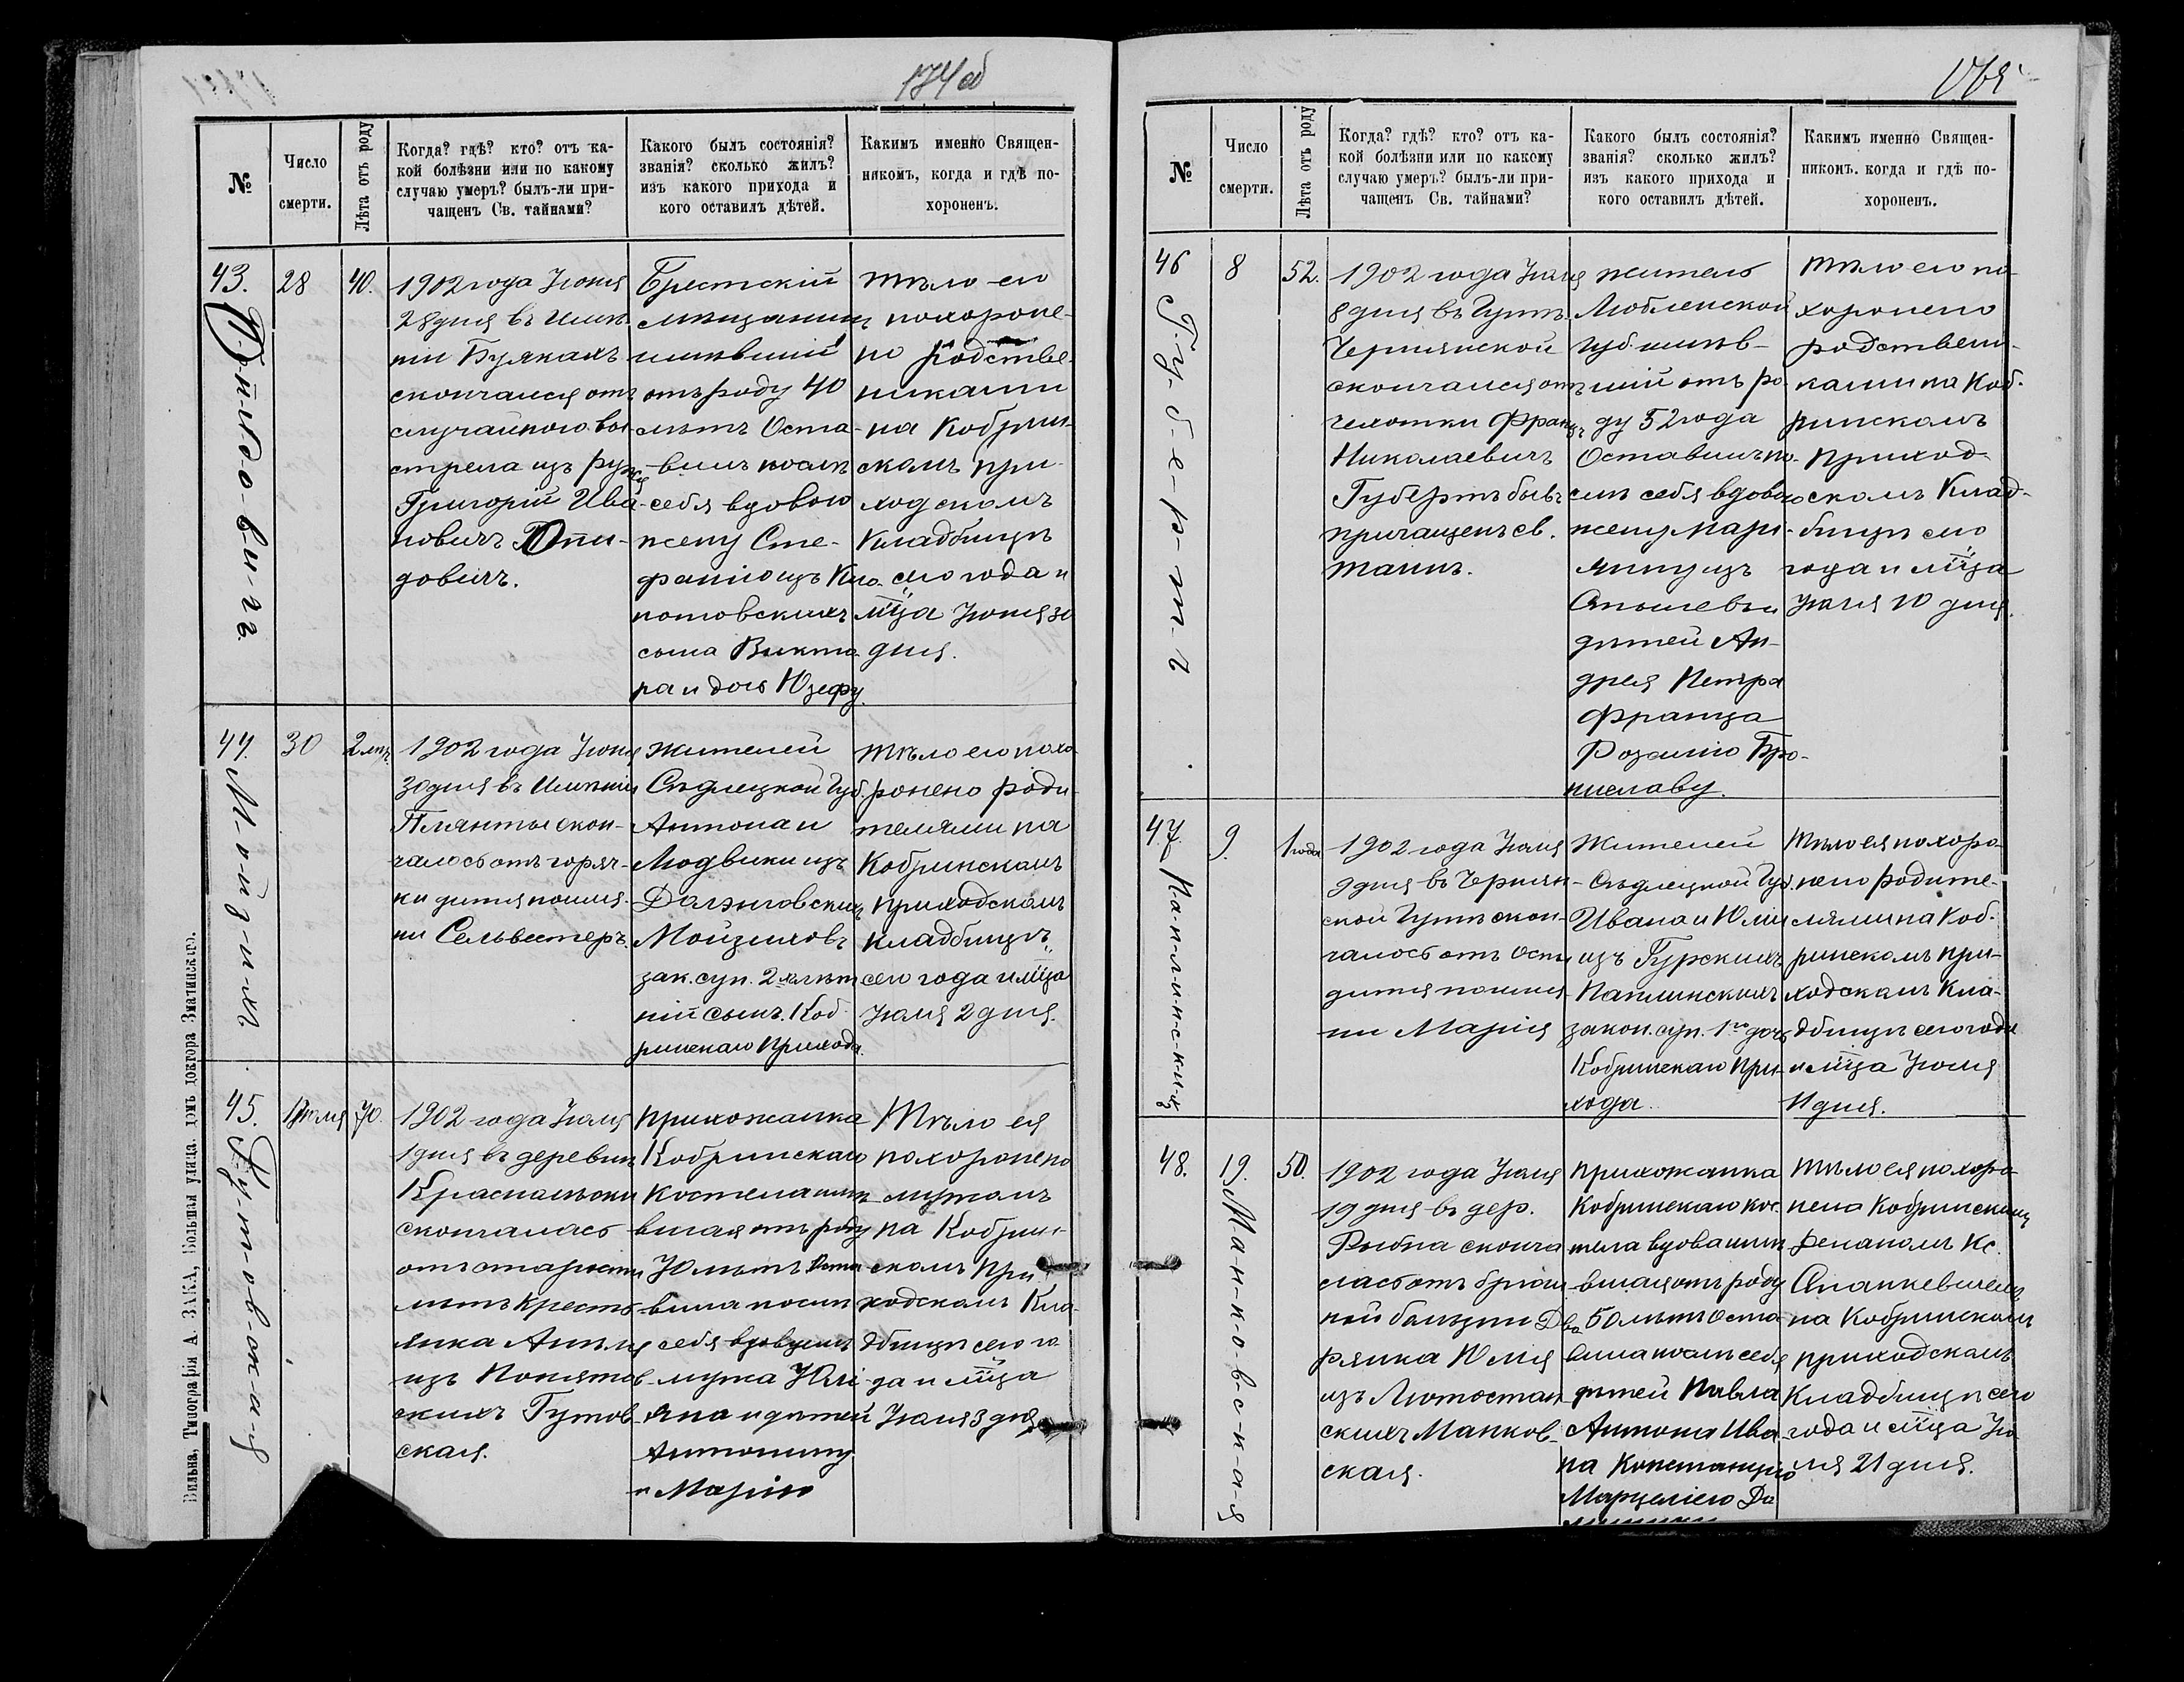 174 об
№
Число
смерти.
Лѣта отъ роду
Когда? гдѣ? кто? отъ ка-
кой болѣзни или по какому
случаю умеръ? былъ-ли при-
чащенъ Св. тайнами?
Какого былъ состоянія?
званія? сколько жилъ?
изъ какого прихода и
кого оставилъ дѣтей.
Какимъ именно Священ-
никомъ, когда и гдѣ по-
хороненъ.
43.
28
40.
1902 года Іюня
28 дня въ Имѣ-
ніи Булкахъ
скончался отъ
случайного вы-
стрела изъ ружя
Григорій Ива-
новичъ
довичъ.
Брестскій
мѣщанинъ
имѣвшій
отъ роду 40
лѣтъ Оста-
вилъ послѣ
себя вдовою
жену Сте-
фанію изъ
сына Викто-
ра и дочь Юзефу.
Тѣло его
похороне-
но родстве-
никами
на Кобрин-
скомъ при-
ходскомъ
Кладбищѣ
сего года и
мѣца Іюня 30
дня.
44.
М-о-й-з-и-х
30
2 лѣт.
1902 года Іюня
30 дня въ Имѣніи
Плянты скон-
чалось отъ горяч-
ки дитя поимя-
ни Сельвестеръ.
Жителей
Сѣдлецкой Губ.
Антона и
Людвики изъ
Мойзиховъ
зак. суп. 2хлѣт
ній сынъ. Коб-
ринскаго Прихода.
Тѣло его похо-
ронено роди-
телями на
Кобринскомъ
приходскомъ
кладбищѣ
сего года и мѣца
Іюля 2 дня.
45.
Г-у-т-о-в-с-к-а-я
1 Іюля
70.
1902 года Іюля
1 дня въ деревни
скончалась
отъ старости
лѣтъ Кресть-
янка Анѣля
изъ Понятов-
скихъ Гутов-
ская.
Прихожанка
Кобринскаго
Костела имѣ-
вшая отъ роду
70 лѣтъ Оста-
вила послѣ
себя вдовцемъ
мужа Юлі-
яна и дѣтей
Антонину
и Марію
Тѣло ея
похоронено
мужомъ
на Кобрин-
скомъ При-
ходскомъ Кла-
дбищѣ сего го-
да и мѣца
Іюля 3 дня
Вильна, Типографія А. ЗАКА, Большая улица. домъ доктора Зматинскаго.
№
Число
смерти.
Лѣта отъ роду
Когда? гдѣ? кто? отъ ка-
кой болѣзни или по какому
случаю умеръ? былъ-ли при-
чащенъ Св. тайнами?
Какого былъ состоянія?
званія? сколько жилъ?
изъ какого прихода и
кого оставилъ дѣтей.
Какимъ именно Священ-
никомъ. когда и гдѣ по-
хороненъ.
46
Г-у-б-е-р-т-ъ
8
52.
1902 года Іюля
8 дня въ Гутѣ
Чернянской
скончался отъ
чехотки Францъ
Николаевичъ
Губертъ бывъ
причащенъ св.
таинъ.
Житель
Люблинской
губ. имѣв-
шій отъ ро-
ду 52 года
Оставилъ по-
слѣ себя вдовою
жену Мари-
янну изъ
дѣтей Ан-
дрея Петра
Франца
Розалію Бро-
ниславу.
Тѣло его по-
хоронено
родствени-
ками на Коб-
ринскомъ
Приход-
скомъ Клад-
бищѣ сего
года и мѣца
Іюля 10 дня.
47.
К-а-п-л-и-н-с-к-и-х
9.
1 года
1902 года Іюля
9 дня въ Чернян-
ской Гутѣ скон-
чалось отъ Оспы
дитя поимя-
ни Марія
Жителей
Сѣдлецкой Губ.
Ивана и Юліи
изъ Гурскихъ
Каплинскихъ
закон. суп. 1го дочь
Кобринскаго При-
хода.
Тѣло ея похоро-
нено родите-
лями на Коб-
ринскомъ при-
ходскомъ Кла-
дбищѣ сего года
и мѣца Іюля
11 дня.
48.
М-а-н-к-о-в-с-к-а-я
19.
50.
1902 года Іюля
19 дня въ дер.
Рыбна сконча-
лась отъ брюш-
ной болѣзни Дво-
рянка Юлія
изъ Лютостан-
скихъ Манков-
ская.
Прихожанка
Кобринскаго Кос-
тела вдова имѣ-
вшая отъ роду
50 лѣтъ Оста-
вила послѣ себя
дѣтей Павла
Антона Ива-
на Констанцію
Марцелію До
Тѣло ея похоро-
нено Кобринскимъ
Деканомъ Кс.
на Кобринскомъ
приходскомъ
Кладбищѣ сего
года и мѣца Ію-
ля 21 дня.